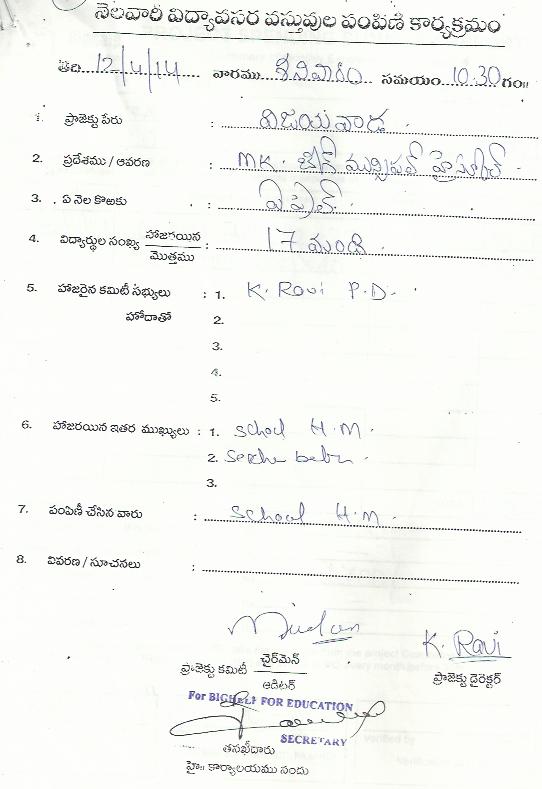 నెలవారి విద్యావసర వస్తువుల పంపిణి కార్యక్రమం
తేది. 12/4/14 వారము శనివారం సమయం 10.30గం॥
1. ప్రాజెక్టు పేరు : విజయవాడ
2. ప్రదేశము / ఆవరణ : MK. బేగ్ మున్సిపల్ హైస్కూల్
3. ఏ నెల కొఱకు : ఏప్రిల్
4. విద్యార్థుల సంఖ్య హాజరయిన / మొత్తము : 17 మంది
5. హాజరైన కమిటీ సభ్యులు : 1. K. Ravi P.D.
హోదాతో 2.
3.
4.
5.
6. హాజరయిన ఇతర ముఖ్యులు : 1. School H.M.
2. babu
3.
7. పంపిణీ చేసిన వారు : School H.M.
8. వివరణ / సూచనలు :
K. Ravi
ప్రాజెక్టు కమిటీ చైర్‌మెన్ / ఆడిటర్
ప్రాజెక్టు డైరెక్టర్
For BIGHELP FOR EDUCATION
SECRETARY
తనఖీదారు
హై॥ కార్యాలయము నందు